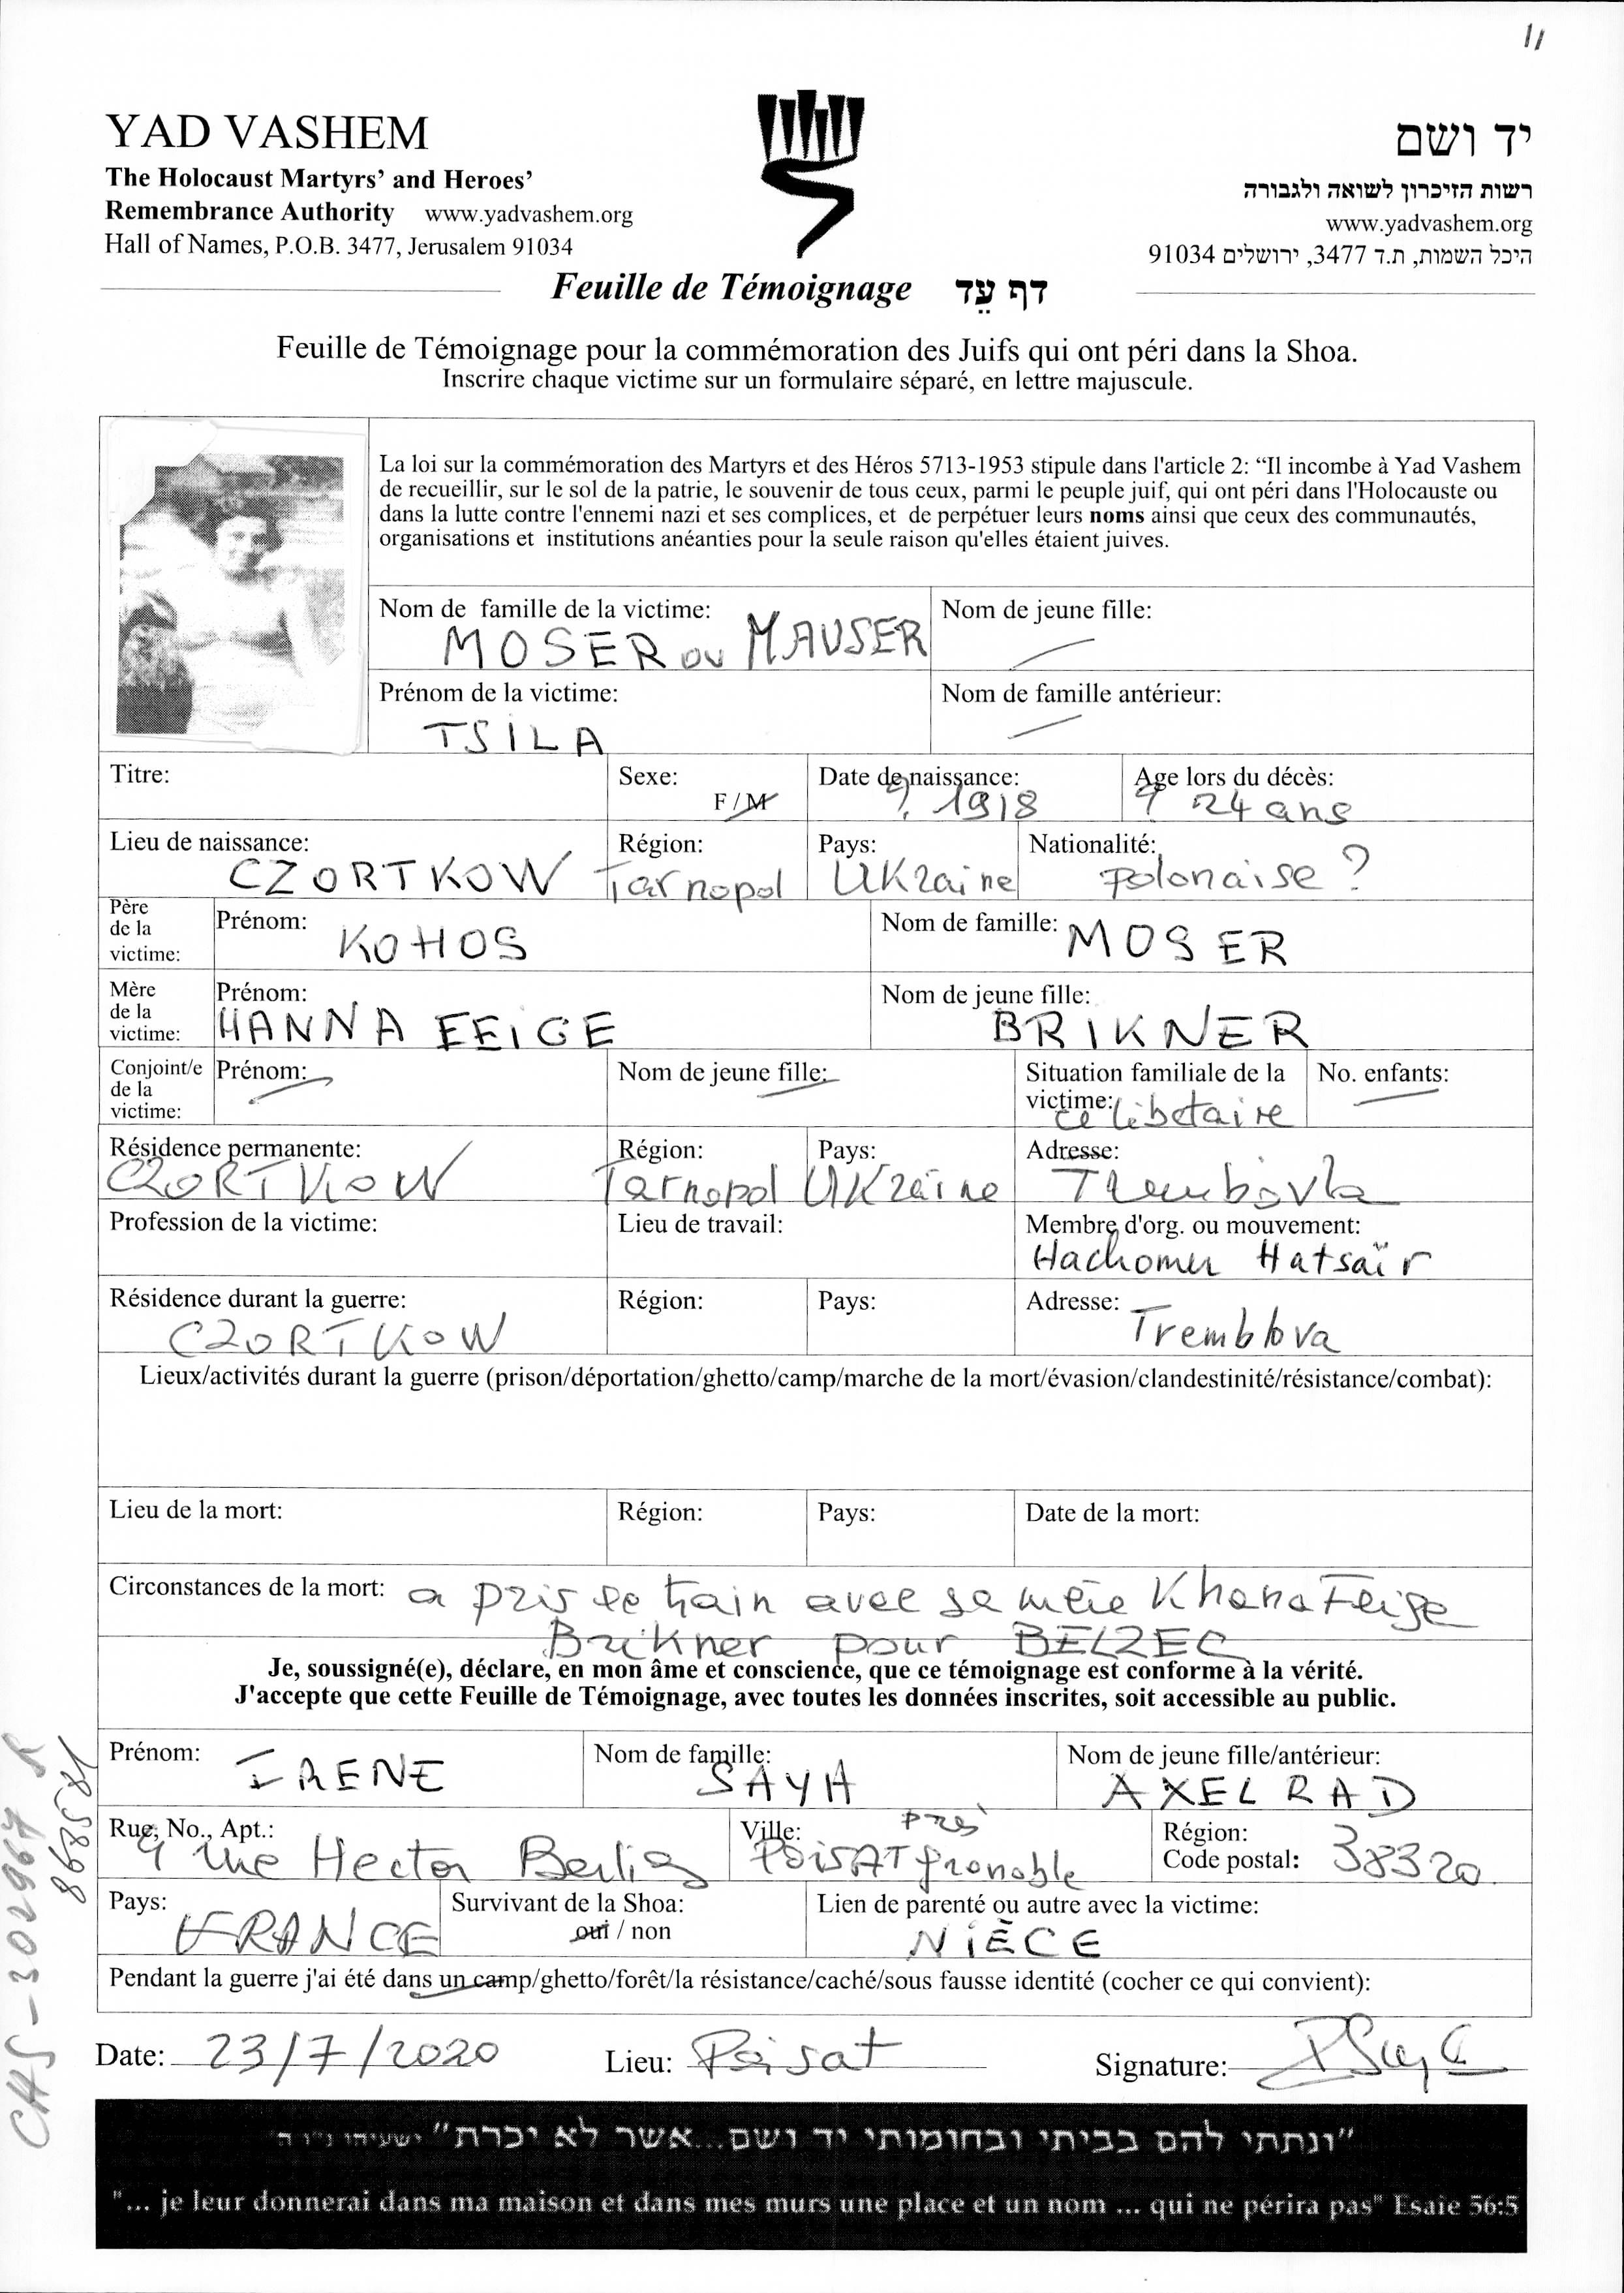 11
YAD VASHEM
The Holocaust Martyrs' and Heroes'
Remembrance Authority www.yadvashem.org
Hall of Names, P.O.B. 3477, Jerusalem 91034
יד ושם
רשות הזיכרון לשואה ולגבורה
www.yadvashem.org
היכל השמות, ת.ד 3477, ירושלים 91034
Feuille de Témoignage דף עֵד
Feuille de Témoignage pour la commémoration des Juifs qui ont péri dans la Shoa.
Inscrire chaque victime sur un formulaire séparé, en lettre majuscule.
La loi sur la commémoration des Martyrs et des Héros 5713-1953 stipule dans l'article 2: “Il incombe à Yad Vashem
de recueillir, sur le sol de la patrie, le souvenir de tous ceux, parmi le peuple juif, qui ont péri dans l'Holocauste ou
dans la lutte contre l'ennemi nazi et ses complices, et de perpétuer leurs noms ainsi que ceux des communautés,
organisations et institutions anéanties pour la seule raison qu'elles étaient juives.
Nom de famille de la victime: MOSER ou MAUSER
Nom de jeune fille:
Prénom de la victime: TSILA
Nom de famille antérieur:
Titre:
Sexe: F / M
Date de naissance: ? 1918
Age lors du décès: ? 24 ans
Lieu de naissance: CZORTKOW
Région: Tarnopol
Pays: UKraine
Nationalité: polonaise ?
Père de la victime:
Prénom: KOHOS
Nom de famille: MOSER
Mère de la victime:
Prénom: HANNA FEIGE
Nom de jeune fille: BRIKNER
Conjoint/e de la victime:
Prénom:
Nom de jeune fille:
Situation familiale de la victime: celibataire
No. enfants:
Résidence permanente: CZORTKOW
Région: Tarnopol
Pays: UKraine
Adresse:
Profession de la victime:
Lieu de travail:
Membre d'org. ou mouvement: Hachomer Hatsaïr
Résidence durant la guerre: CZORTKOW
Région:
Pays:
Adresse: Tremblova
Lieux/activités durant la guerre (prison/déportation/ghetto/camp/marche de la mort/évasion/clandestinité/résistance/combat):
Lieu de la mort:
Région:
Pays:
Date de la mort:
Circonstances de la mort: a pris le train avec sa mère Khana Feige
Brikner pour BELZEC
Je, soussigné(e), déclare, en mon âme et conscience, que ce témoignage est conforme à la vérité.
J'accepte que cette Feuille de Témoignage, avec toutes les données inscrites, soit accessible au public.
Prénom: IRENE
Nom de famille: SAYH
Nom de jeune fille/antérieur: AXELRAD
Rue, No., Apt.: 9 rue Hector Berlioz
Ville: POISAT près grenoble
Région:
Code postal: 38320
Pays: FRANCE
Survivant de la Shoa: oui / non
Lien de parenté ou autre avec la victime: NIÈCE
Pendant la guerre j'ai été dans un camp/ghetto/forêt/la résistance/caché/sous fausse identité (cocher ce qui convient):
Date: 23/7/2020
Lieu: Poisat
Signature:
CHS-302967 R
8685581
"ונתתי להם בביתי ובחומותי יד ושם...אשר לא יכרת" ישעיהו נ"ו ה'
"... je leur donnerai dans ma maison et dans mes murs une place et un nom ... qui ne périra pas" Esaie 56:5